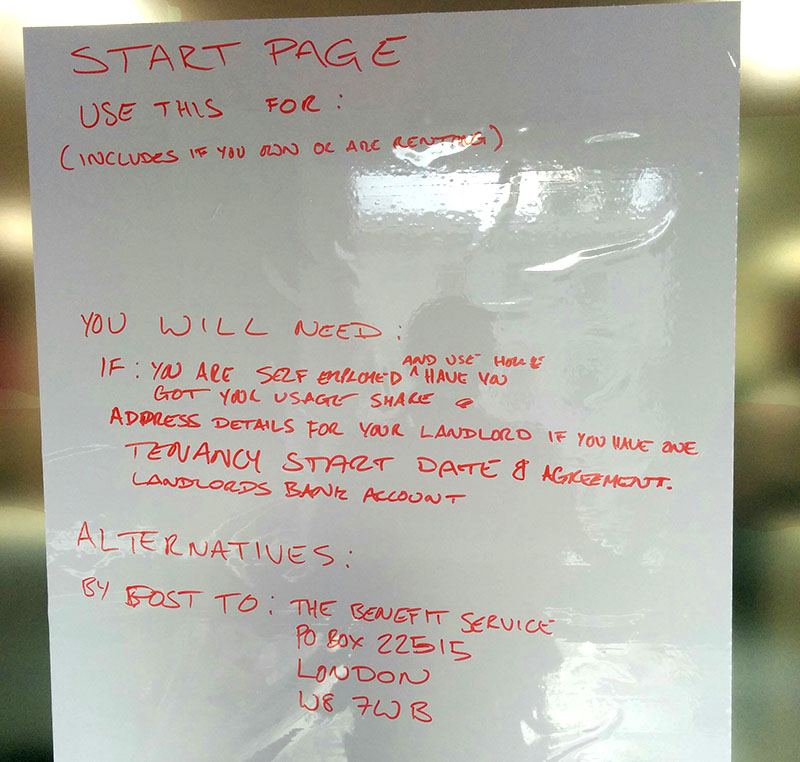 START PAGE
USE THIS FOR:
(INCLUDES IF YOU OWN OR ARE RENTING)
YOU WILL NEED:
AND USE HOME
IF: YOU ARE SELF EMPLOYED ^ HAVE YOU
GOT YOUR USAGE SHARE
ADDRESS DETAILS FOR YOUR LANDLORD IF YOU HAVE ONE
TENANCY START DATE & AGREEMENT.
LANDLORDS BANK ACCOUNT
ALTERNATIVES:
BY POST TO: THE BENEFIT SERVICE
PO BOX 22515
LONDON
W8 7WB